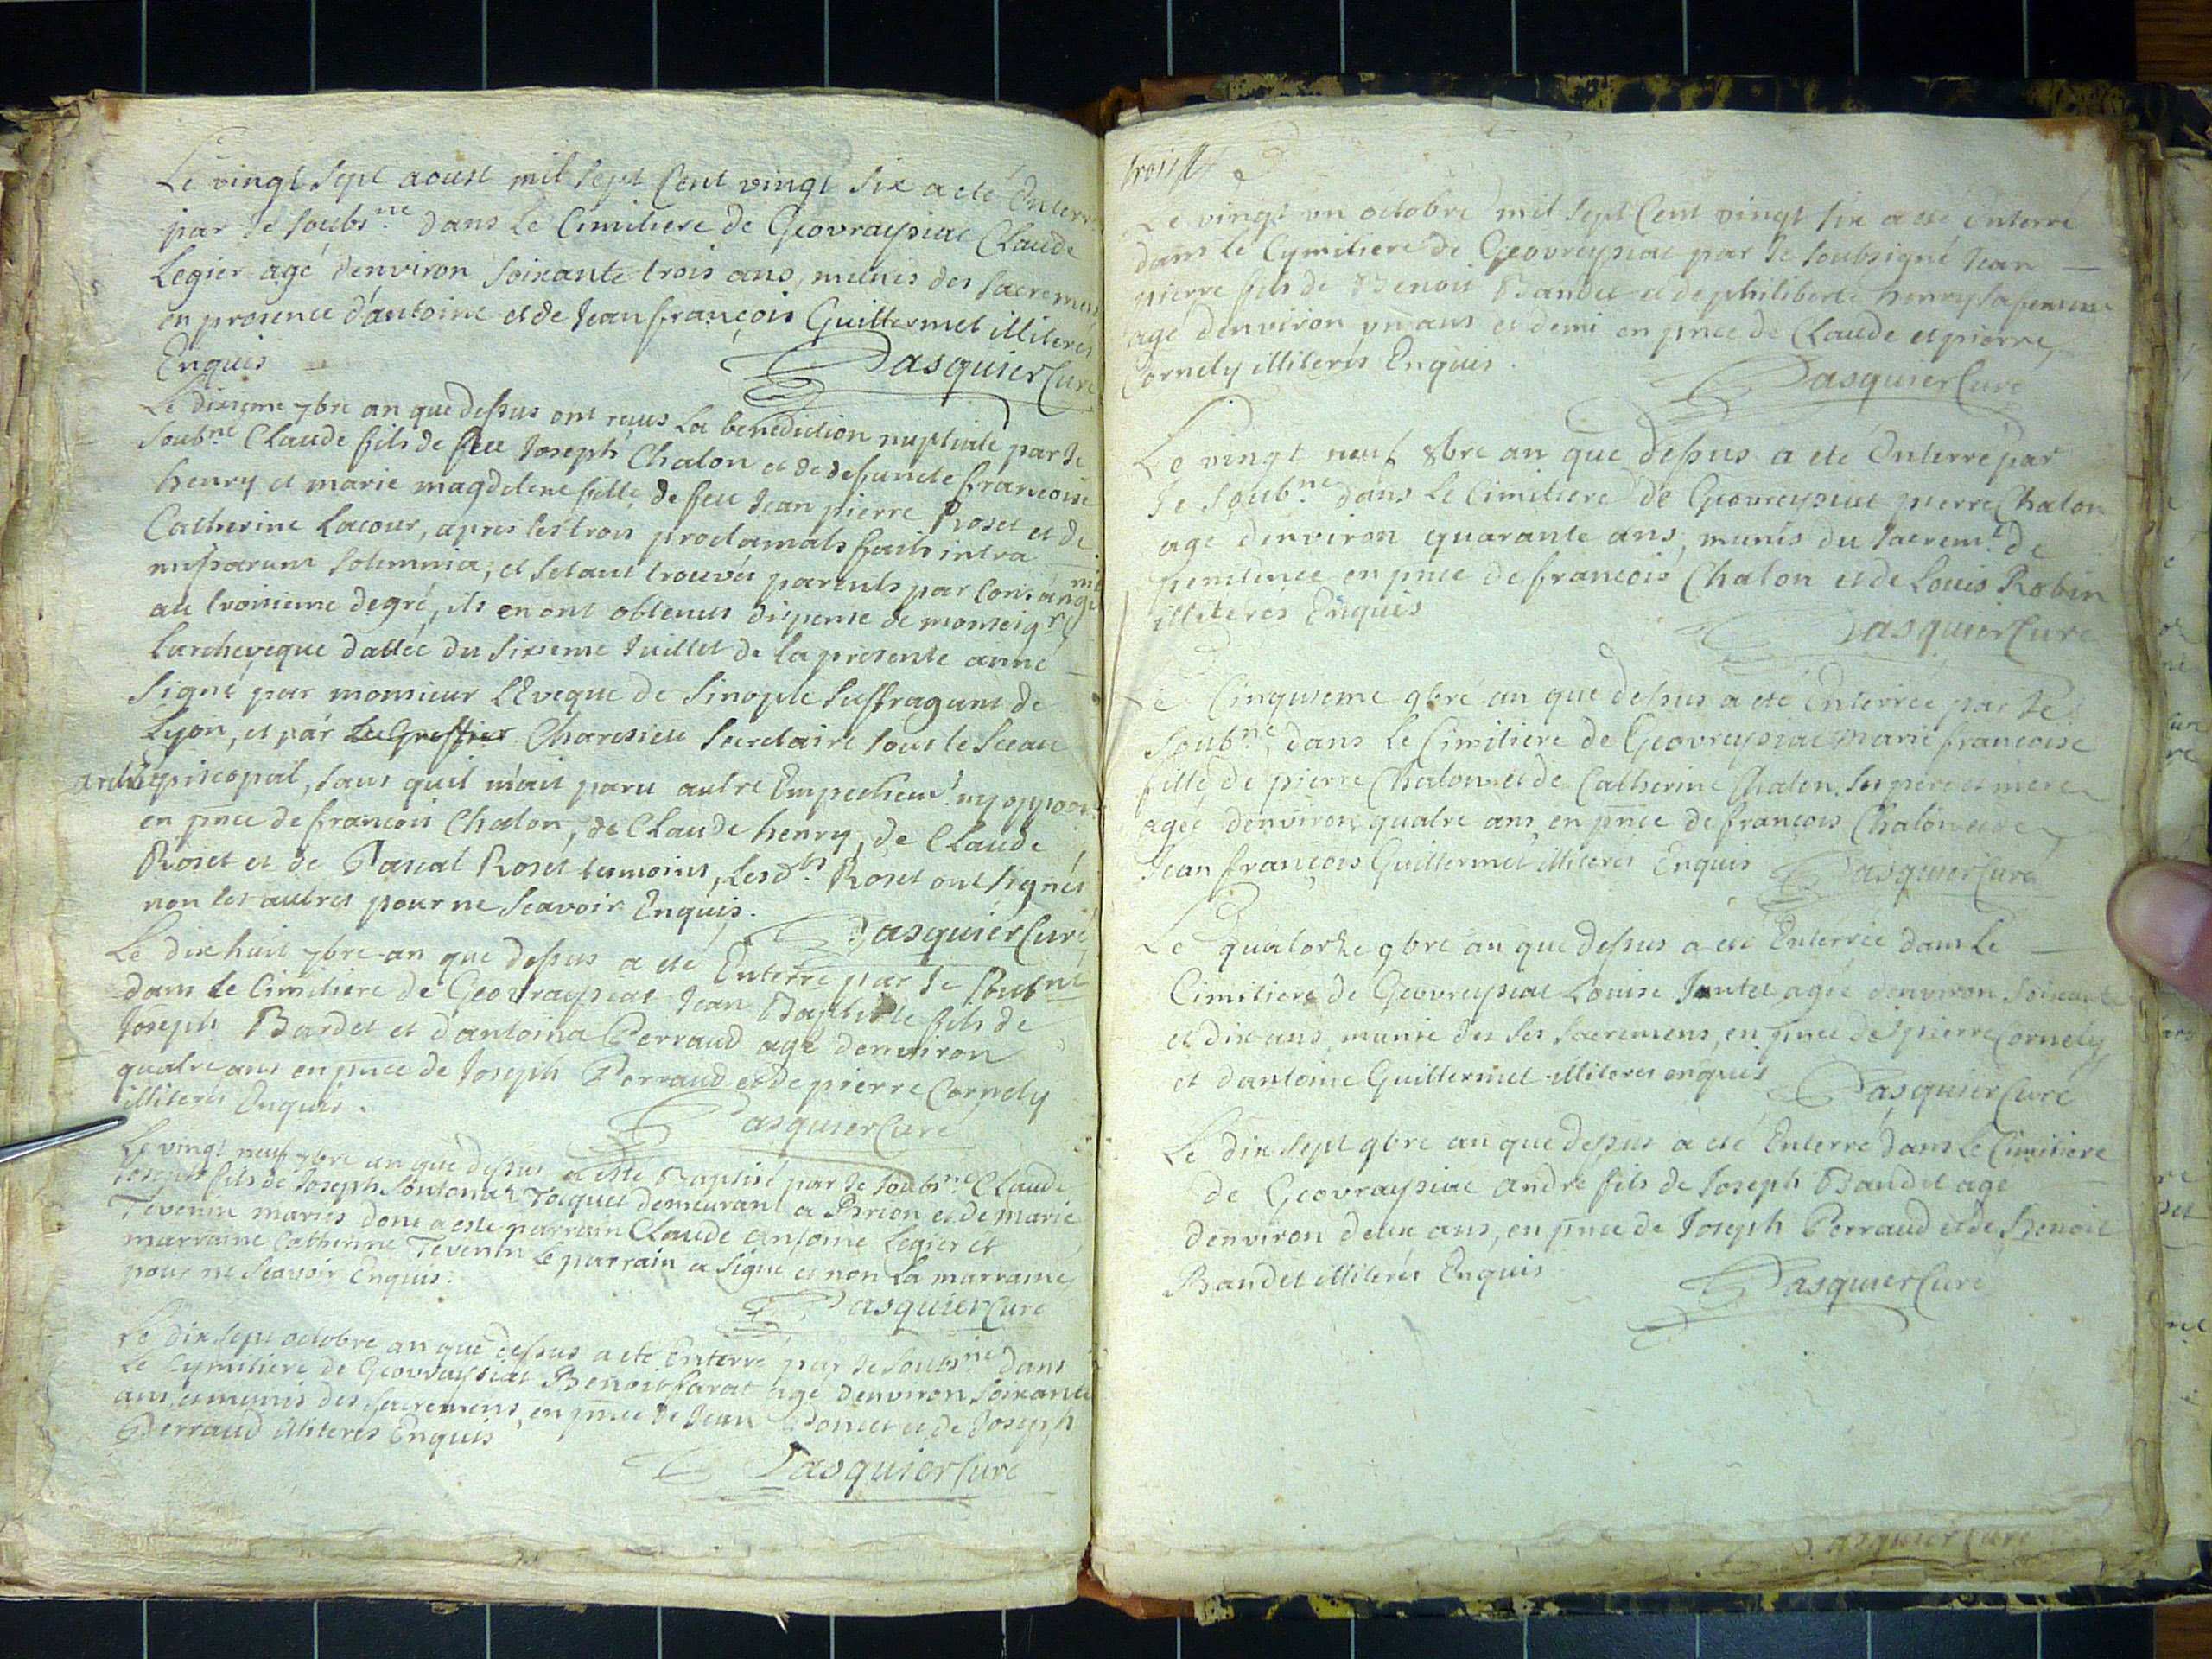 Le vingt Sept aoust mil Sept Cent vingt Six a eté Enterr
par Je Soubs.ne dans Le Cimitiere de Geovraysiat Claude
Legier agé denviron Soixante trois ans, munis des Sacremens
en presence d'antoine et de Jean françois Guillermet illiteres
Enquis Pasquier Curé
Le dixieme 7bre an que dessus ont reçus La benediction nuptiale par Je
Soub.ne Claude fils de feu Joseph Chalon et de defuncte françoise
henry et marie magdelene fille de feu Jean pierre Roset et de
Catherine Lacour, apres les trois proclamats faits intra
missarum Solemnia, et Setant trouvés parents par
au troisieme degré, ils en ont obtenus dispense de monseigr
Larcheveque dattée du Sixieme Juillet de la presente anné
Signé par monsieur LEveque de Sinople Suffragant de
Lyon, et par Le Greffier Charesieu Secretaire Sous le Sceau
archiepiscopal, sans quil m'ait paru autre Empechemt. ny oppoon.
en pnce de françois Chalon, de Claude henry, de Claude
Roset et de Pascal Roset temoins, Lesd.ts Roset ont Signés
non les autres pour ne Scavoir Enquis.
Pasquier Curé
Le dix huit 7bre an que dessus a eté Enterré par Je Soub.ne
dans Le Cimitiere de Geovraysiat Jean Baptiste fils de
Joseph Bardet et d'antoina Perraud agé denviron
quatre ans en pnce de Joseph Perraud et de pierre Cornely
illiterés Enquis.
Pasquier Curé
Le vingt neuf 7bre an que dessus a esté Baptisé par Je Soubs.ne Claude
Joseph fils de Joseph Tocquet demeurant a Brion et de marie
Tevenin mariés dont a esté parrain Claude antoine Legier et
marraine Catherine Tevenin Le parrain a Signé et non La marraine
pour ne Scavoir Enquis.
Pasquier Curé
Le dix Sept octobre an que dessus a eté Enterré par Je Soubs.ne dans
Le Cymitiere de Geovraysiat Benoit farat agé denviron Soixante
ans, et munis des Sacremens, en pnce de Jean et de Joseph
Perraud illiterés Enquis
Pasquier Curé
Le vingt vn octobre mil Sept Cent vingt Six a eté Enterré
dans Le Cymitiere de Geovreysiat par Je Soubsigné Jean
pierre fils de Benoit Bandet et de philiberte henry Sa femme
agé denviron vn ans et demi en pnce de Claude et pierre
Cornely illiterés Enquis.
Pasquier Curé
Le vingt neuf 8bre an que dessus a eté Enterré par
Je Soub.ne dans Le Cimitiere de Geovreysiat pierre Chalon
agé denviron quarante ans, munis du Sacrem.t de
penitence en pnce de françois Chalon et de Louis Robin
illiterés Enquis
Pasquier Curé
Le Cinquieme 9bre an que dessus a eté Enterrée par Je
Soub.ne dans Le Cimitiere de Geovreysiat marie françoise
fille de pierre Chalon et de Catherine Chalon Ses pere et mere
agée denviron quatre ans en pnce de françois Chalon et de
Jean françois Guillermet illiterés Enquis Pasquier Curé
Le quatorze 9bre an que dessus a eté Enterrée dans Le
Cimitiere de Geovreysiat Louise Jantet agée denviron Soixante
et dix ans, munie des Ses Sacremens, en pnce de pierre Cornely
et d'antoine Guillermet illiteres enquis
Pasquier Curé
Le dix Sept 9bre an que dessus a eté Enterré dans Le Cimitiere
de Geovraysiat andré fils de Joseph Bandet agé
denviron deux ans, en pnce de Joseph Perraud et de Benoit
Bandet illiterés Enquis
Pasquier Curé